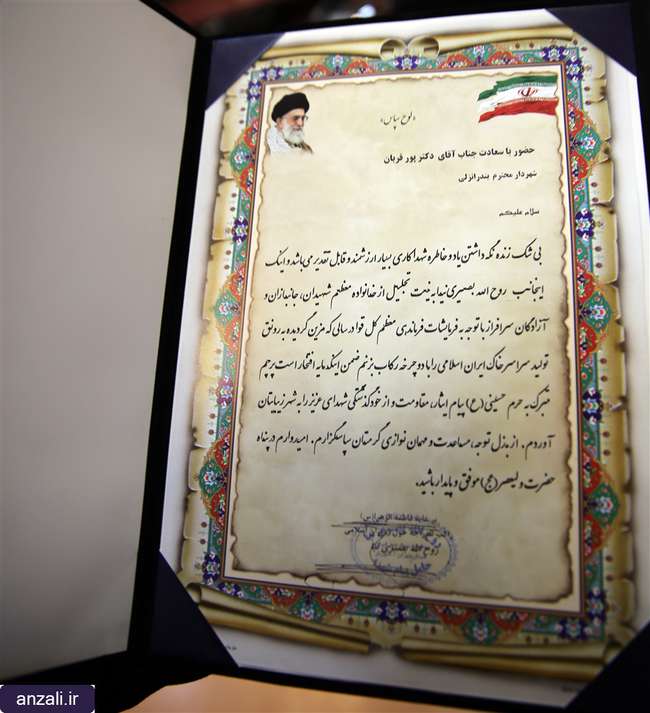 «لوح سپاس»
حضور با سعادت جناب آقای دکتر پور قربان
شهردار محترم بندرانزلی
سلام علیکم
بی شک زنده نگه داشتن یاد و خاطره شهدا کاری بسیار ارزشمند و قابل تقدیر می باشد و اینک
اینجانب روح الله بصیری نیا به نیت تجلیل از خانواده معظم شهیدان، جانبازان و
آزادگان سرافراز با توجه به فرمایشات فرماندهی معظم کل قوا در سالی که مزین گردیده به رونق
تولید سراسر خاک ایران اسلامی را با دوچرخه رکاب بزنم ضمن اینکه مایه افتخار است پرچم
متبرک به حرم حسینی (ع) پیام ایثار، مقاومت و از خودگذشتگی شهدای عزیز را به شهر زیبایتان
آوردم. از بذل توجه، مساعدت و مهمان نوازی گرمتان سپاسگزارم. امیدوارم در پناه
حضرت ولیعصر (عج) موفق و پایدار باشید.
anzali.ir